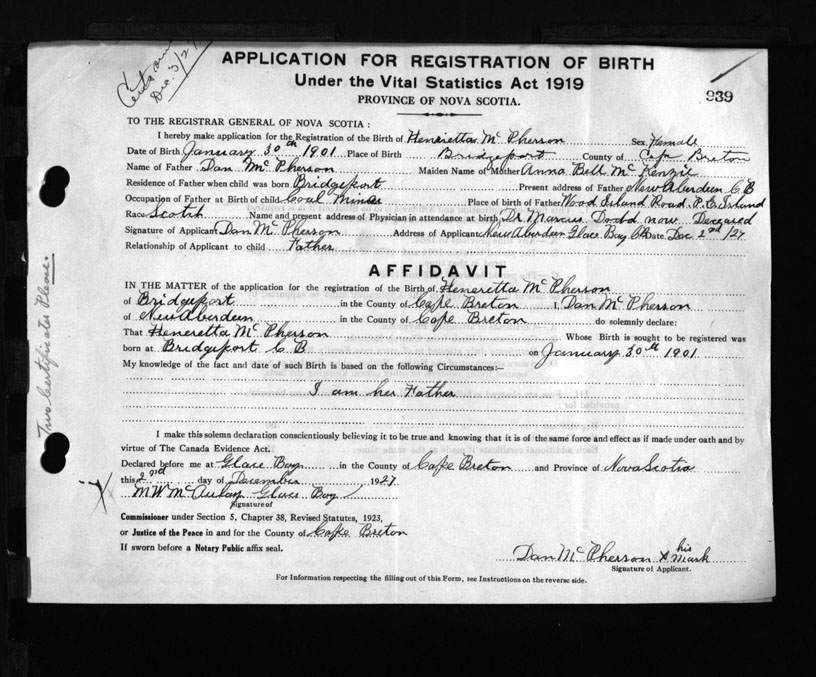 Dec. 3/27
APPLICATION FOR REGISTRATION OF BIRTH
Under the Vital Statistics Act 1919
PROVINCE OF NOVA SCOTIA.
939
TO THE REGISTRAR GENERAL OF NOVA SCOTIA:
I hereby make application for the Registration of the Birth of Heneretta Mc Pherson Sex Female
Date of Birth January 30th 1901 Place of Birth Bridgeport County of Cape Breton
Name of Father Dan Mc Pherson Maiden Name of Mother Anna Bell Mc Kenzie
Residence of Father when child was born Bridgeport Present address of Father New Aberdeen C B
Occupation of Father at Birth of child Coal Miner Place of birth of Father Wood Island Road P. E Island
Race Scotch Name and present address of Physician in attendance at birth Dr. Marcus Dodd now Deceased
Signature of Applicant Dan Mc Pherson Address of Applicant New Aberdeen Glace Bay CB Date Dec 2nd /27
Relationship of Applicant to child Father
AFFIDAVIT
IN THE MATTER of the application for the registration of the Birth of Heneretta Mc Pherson
of Bridgeport in the County of Cape Breton I, Dan Mc Pherson
of New Aberdeen in the County of Cape Breton do solemnly declare:
That Heneretta Mc Pherson Whose Birth is sought to be registered was
born at Bridgeport C B on January 30th 1901
My knowledge of the fact and date of such Birth is based on the following Circumstances:—
I am her Father
I make this solemn declaration conscientiously believing it to be true and knowing that it is of the same force and effect as if made under oath and by
virtue of The Canada Evidence Act.
Declared before me at Glace Bay in the County of Cape Breton and Province of Nova Scotia
this 2nd day of December 1927
M W McAulay Glace Bay
Signature of
Commissioner under Section 5, Chapter 38, Revised Statutes, 1923,
or Justice of the Peace in and for the County of Cape Breton
If sworn before a Notary Public affix seal.
Dan Mc Pherson X his mark
Signature of Applicant.
For Information respecting the filling out of this Form, see Instructions on the reverse side.
Two Certificates Please.